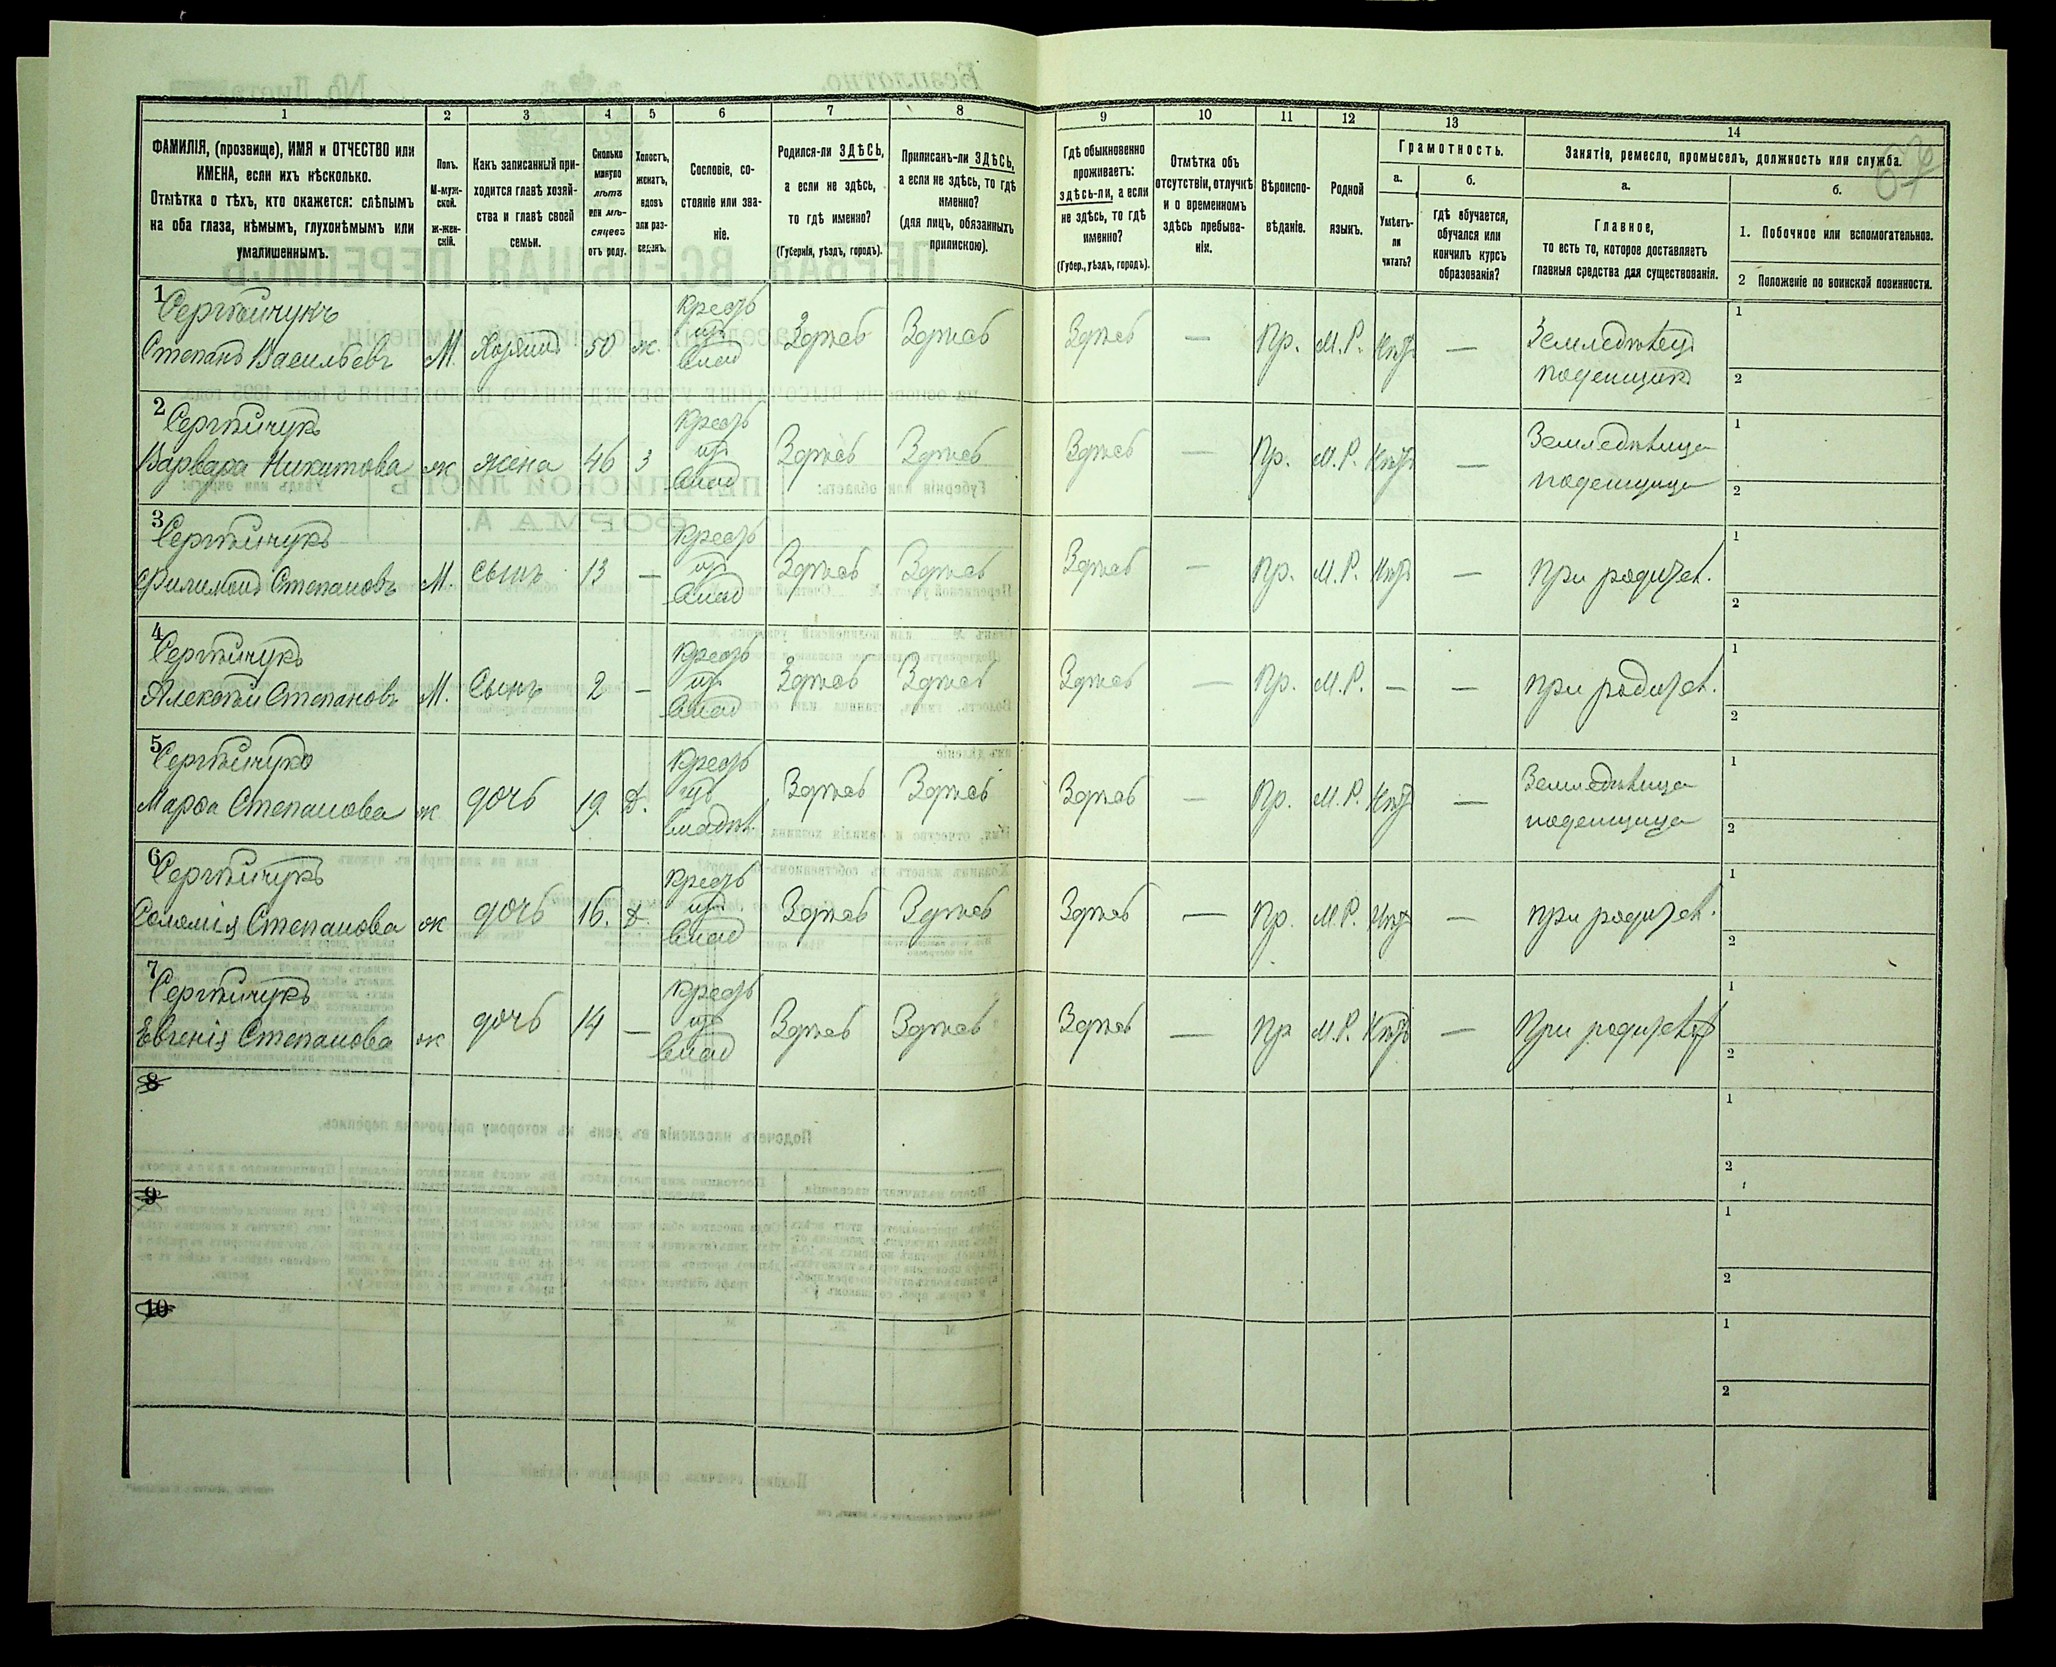 1
2
3
4
5
6
7
8
9
10
11
12
13
14
ФАМИЛІЯ, (прозвище), ИМЯ и ОТЧЕСТВО или
ИМЕНА, если ихъ нѣсколько.
Отмѣтка о тѣхъ, кто окажется: слѣпымъ
на оба глаза, нѣмымъ, глухонѣмымъ или
умалишеннымъ.
Полъ.
М-муж-
ской.
ж-жен-
скій.
Какъ записанный при-
ходится главѣ хозяй-
ства и главѣ своей
семьи.
Сколько
минуло
лѣтъ
или мѣ-
сяцевъ
отъ роду.
Холостъ,
женатъ,
вдовъ
или раз-
веденъ.
Сословіе, со-
стояніе или зва-
ніе.
Родился-ли ЗДѢСЬ,
а если не здѣсь,
то гдѣ именно?
(Губернія, уѣздъ, городъ).
Приписанъ-ли ЗДѢСЬ,
а если не здѣсь, то гдѣ
именно?
(для лицъ, обязанныхъ
припискою).
Гдѣ обыкновенно
проживаетъ:
здѣсь-ли, а если
не здѣсь, то гдѣ
именно?
(Губер., уѣздъ, городъ).
Отмѣтка объ
отсутствіи, отлучкѣ
и о временномъ
здѣсь пребыва-
ніи.
Вѣроиспо-
вѣданіе.
Родной
языкъ.
Грамотность.
а.
Умѣетъ-
ли
читать?
б.
Гдѣ обучается,
обучался или
кончилъ курсъ
образованія?
Занятіе, ремесло, промыселъ, должность или служба.
а.
Главное,
то есть то, которое доставляетъ
главныя средства для существованія.
б.
1. Побочное или вспомогательное.
2 Положеніе по воинской повинности.
1
Сергѣйчукъ
Степанъ Васильевъ
М.
Хозяинъ
50
ж.
Крест
из
влад
Здѣсь
Здѣсь
Здѣсь
—
Пр.
М.Р.
Нѣтъ
—
Земледѣлец
поденщикъ
1
2
2
Сергѣйчукъ
Варвара Никитова
ж
жена
46
з
Крест
из
влад
Здѣсь
Здѣсь
Здѣсь
—
Пр.
М.Р.
Нѣтъ
—
Земледѣлица
поденщица
1
2
3
Сергѣйчукъ
Филимонъ Степановъ
М.
сынъ
13
—
Крест
из
влад
Здѣсь
Здѣсь
Здѣсь
—
Пр.
М.Р.
Нѣтъ
—
при родител.
1
2
4
Сергѣйчукъ
Алексѣй Степановъ
М.
Сынъ
2
—
Крест
из
влад
Здѣсь
Здѣсь
Здѣсь
—
Пр.
М.Р.
—
—
при родител.
1
2
5
Сергѣйчукъ
Марѳа Степанова
ж
дочь
19.
д.
Крест
из
владѣл.
Здѣсь
Здѣсь
Здѣсь
—
Пр.
М.Р.
Нѣтъ
—
Земледѣлица
поденщица
1
2
6
Сергѣйчукъ
Соломія Степанова
ж
дочь
16.
д.
Крест
из
влад
Здѣсь
Здѣсь
Здѣсь
—
Пр.
М.Р.
Нѣтъ
—
при родител.
1
2
7
Сергѣйчукъ
Евгенія Степанова
ж
дочь
14
—
Крест
из
влад
Здѣсь
Здѣсь
Здѣсь
—
Пр
М.Р.
Нѣтъ
—
При родител
1
2
8
1
2
9
1
2
10
1
2